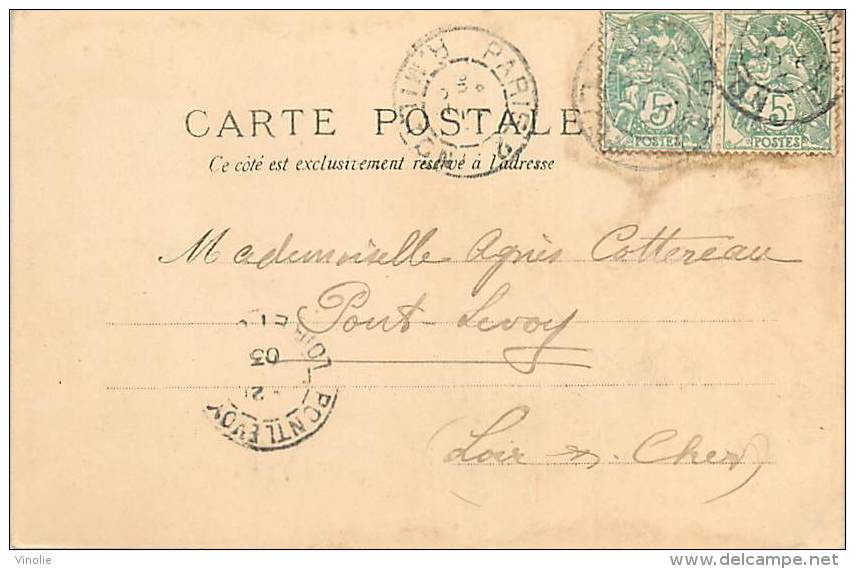 PARIS 2
5c
POSTES
5c
POSTES
CARTE POSTALE
Ce côté est exclusivement réservé à l'adresse
Mademoiselle Agnès Cottereau
Pont-Levoy
(Loir & Cher)
PONTLEVOY
03
Vinolie
delcampe.net